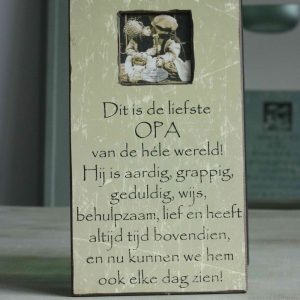 Dit is de liefste
OPA
van de héle wereld!
Hij is aardig, grappig,
geduldig, wijs,
behulpzaam, lief en heeft
altijd tijd bovendien,
en nu kunnen we hem
ook elke dag zien!